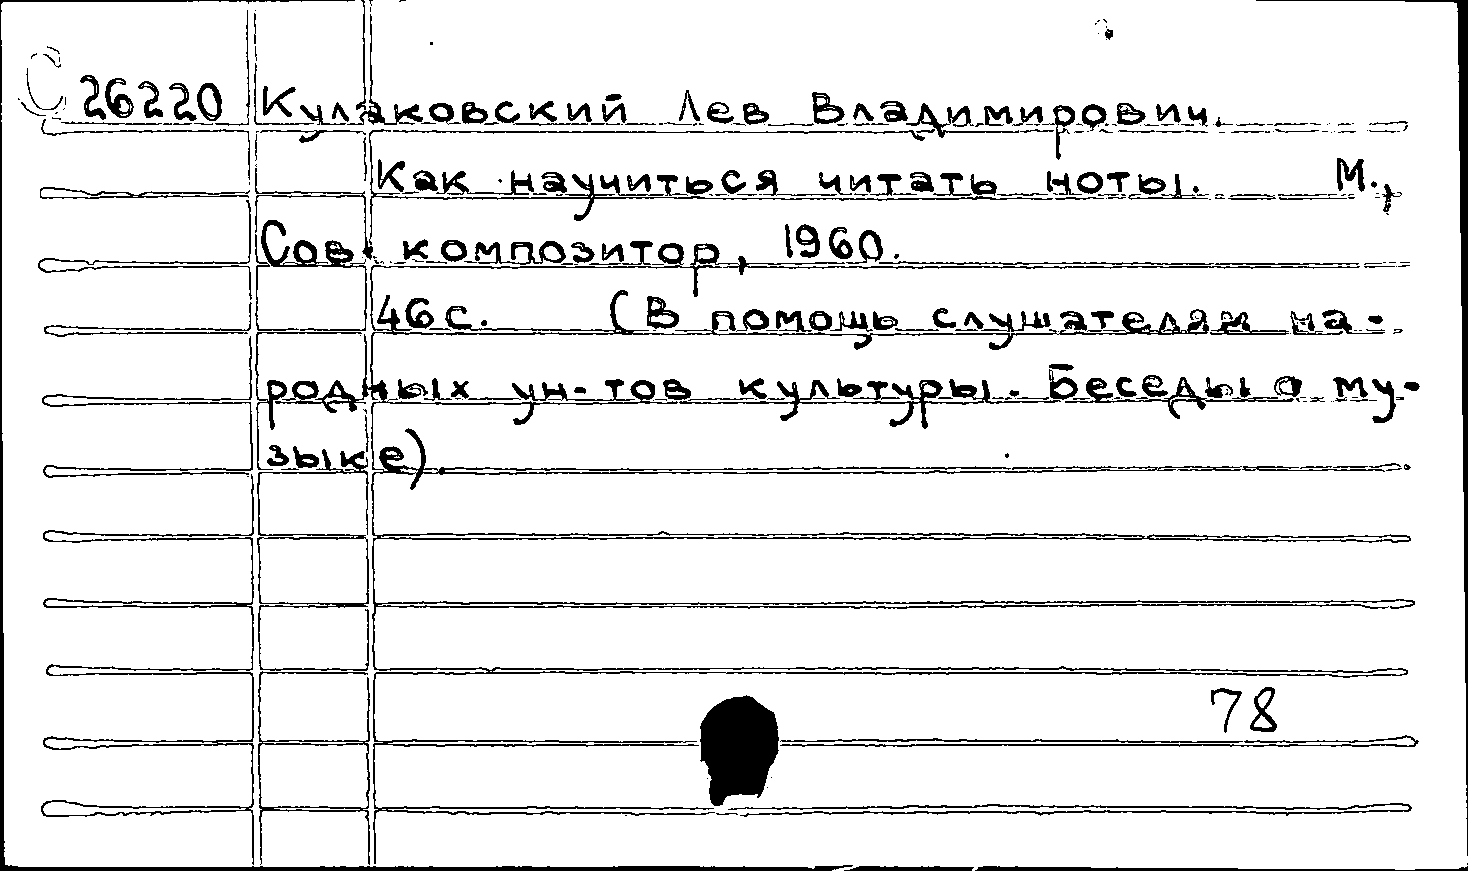 С 26220 Кулаковский Лев Владимирович.
Как научиться читать ноты. М.,
Сов. композитор, 1960.
46 с. (В помощь слушателям на-
родных ун-тов культуры. Беседы о му-
зыке).
78